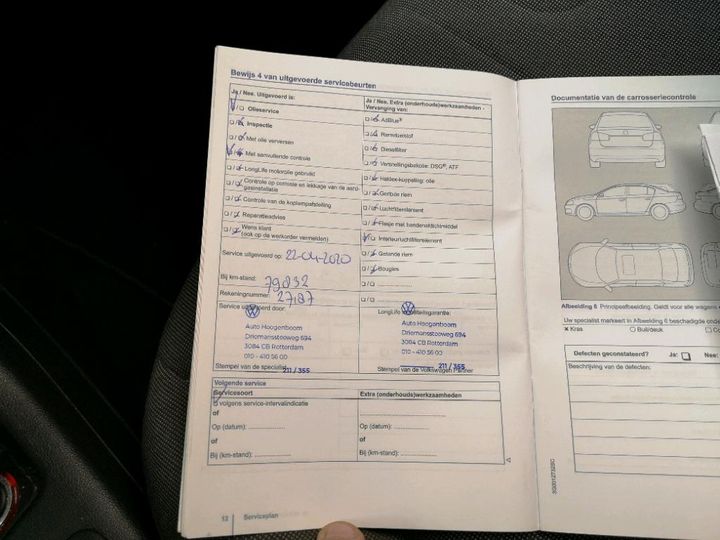 Bewijs 4 van uitgevoerde servicebeurten
Ja / Nee. Uitgevoerd is:
Olieservice
Inspectie
Met olie verversen
Met aanvullende controle
LongLife motorolie gebruikt
Controle op corrosie en lekkage van de airco-
gasinstallatie
Controle van de koplampafstelling
Reparatieadvies
Wens klant
(ook op de werkorder vermelden)
Service uitgevoerd op: 22-04-2020
Bij km-stand: 79832
Rekeningnummer: 27187
Service uitgevoerd door:
Auto Hoogenboom
Driemanssteeweg 694
3084 CB Rotterdam
010 - 410 56 00
211 / 355
Stempel van de specialist
Ja / Nee. Extra (onderhouds)werkzaamheden -
Vervanging van:
AdBlue®
Remvloeistof
Dieselfilter
Versnellingsbakolie: DSG®, ATF
Haldex-koppeling: olie
Geribde riem
Luchtfilterelement
Flesje met bandenafdichtmiddel
Interieurluchtfilterelement
Getande riem
Bougies
LongLife mobiliteitsgarantie:
Auto Hoogenboom
Driemanssteeweg 694
3084 CB Rotterdam
010 - 410 56 00
211 / 355
Stempel van de Volkswagen Partner
Volgende service
Servicesoort
volgens service-intervalindicatie
of
Op (datum):
of
Bij (km-stand):
Extra (onderhouds)werkzaamheden
Op (datum):
of
Bij (km-stand):
12 Serviceplan
Documentatie van de carrosseriecontrole
Afbeelding 6 Principeafbeelding. Geldt voor alle
Uw specialist markeert in Afbeelding 6 beschadigde
x Kras
Buil/deuk
Defecten geconstateerd? Ja: Nee:
Beschrijving van de defecten: